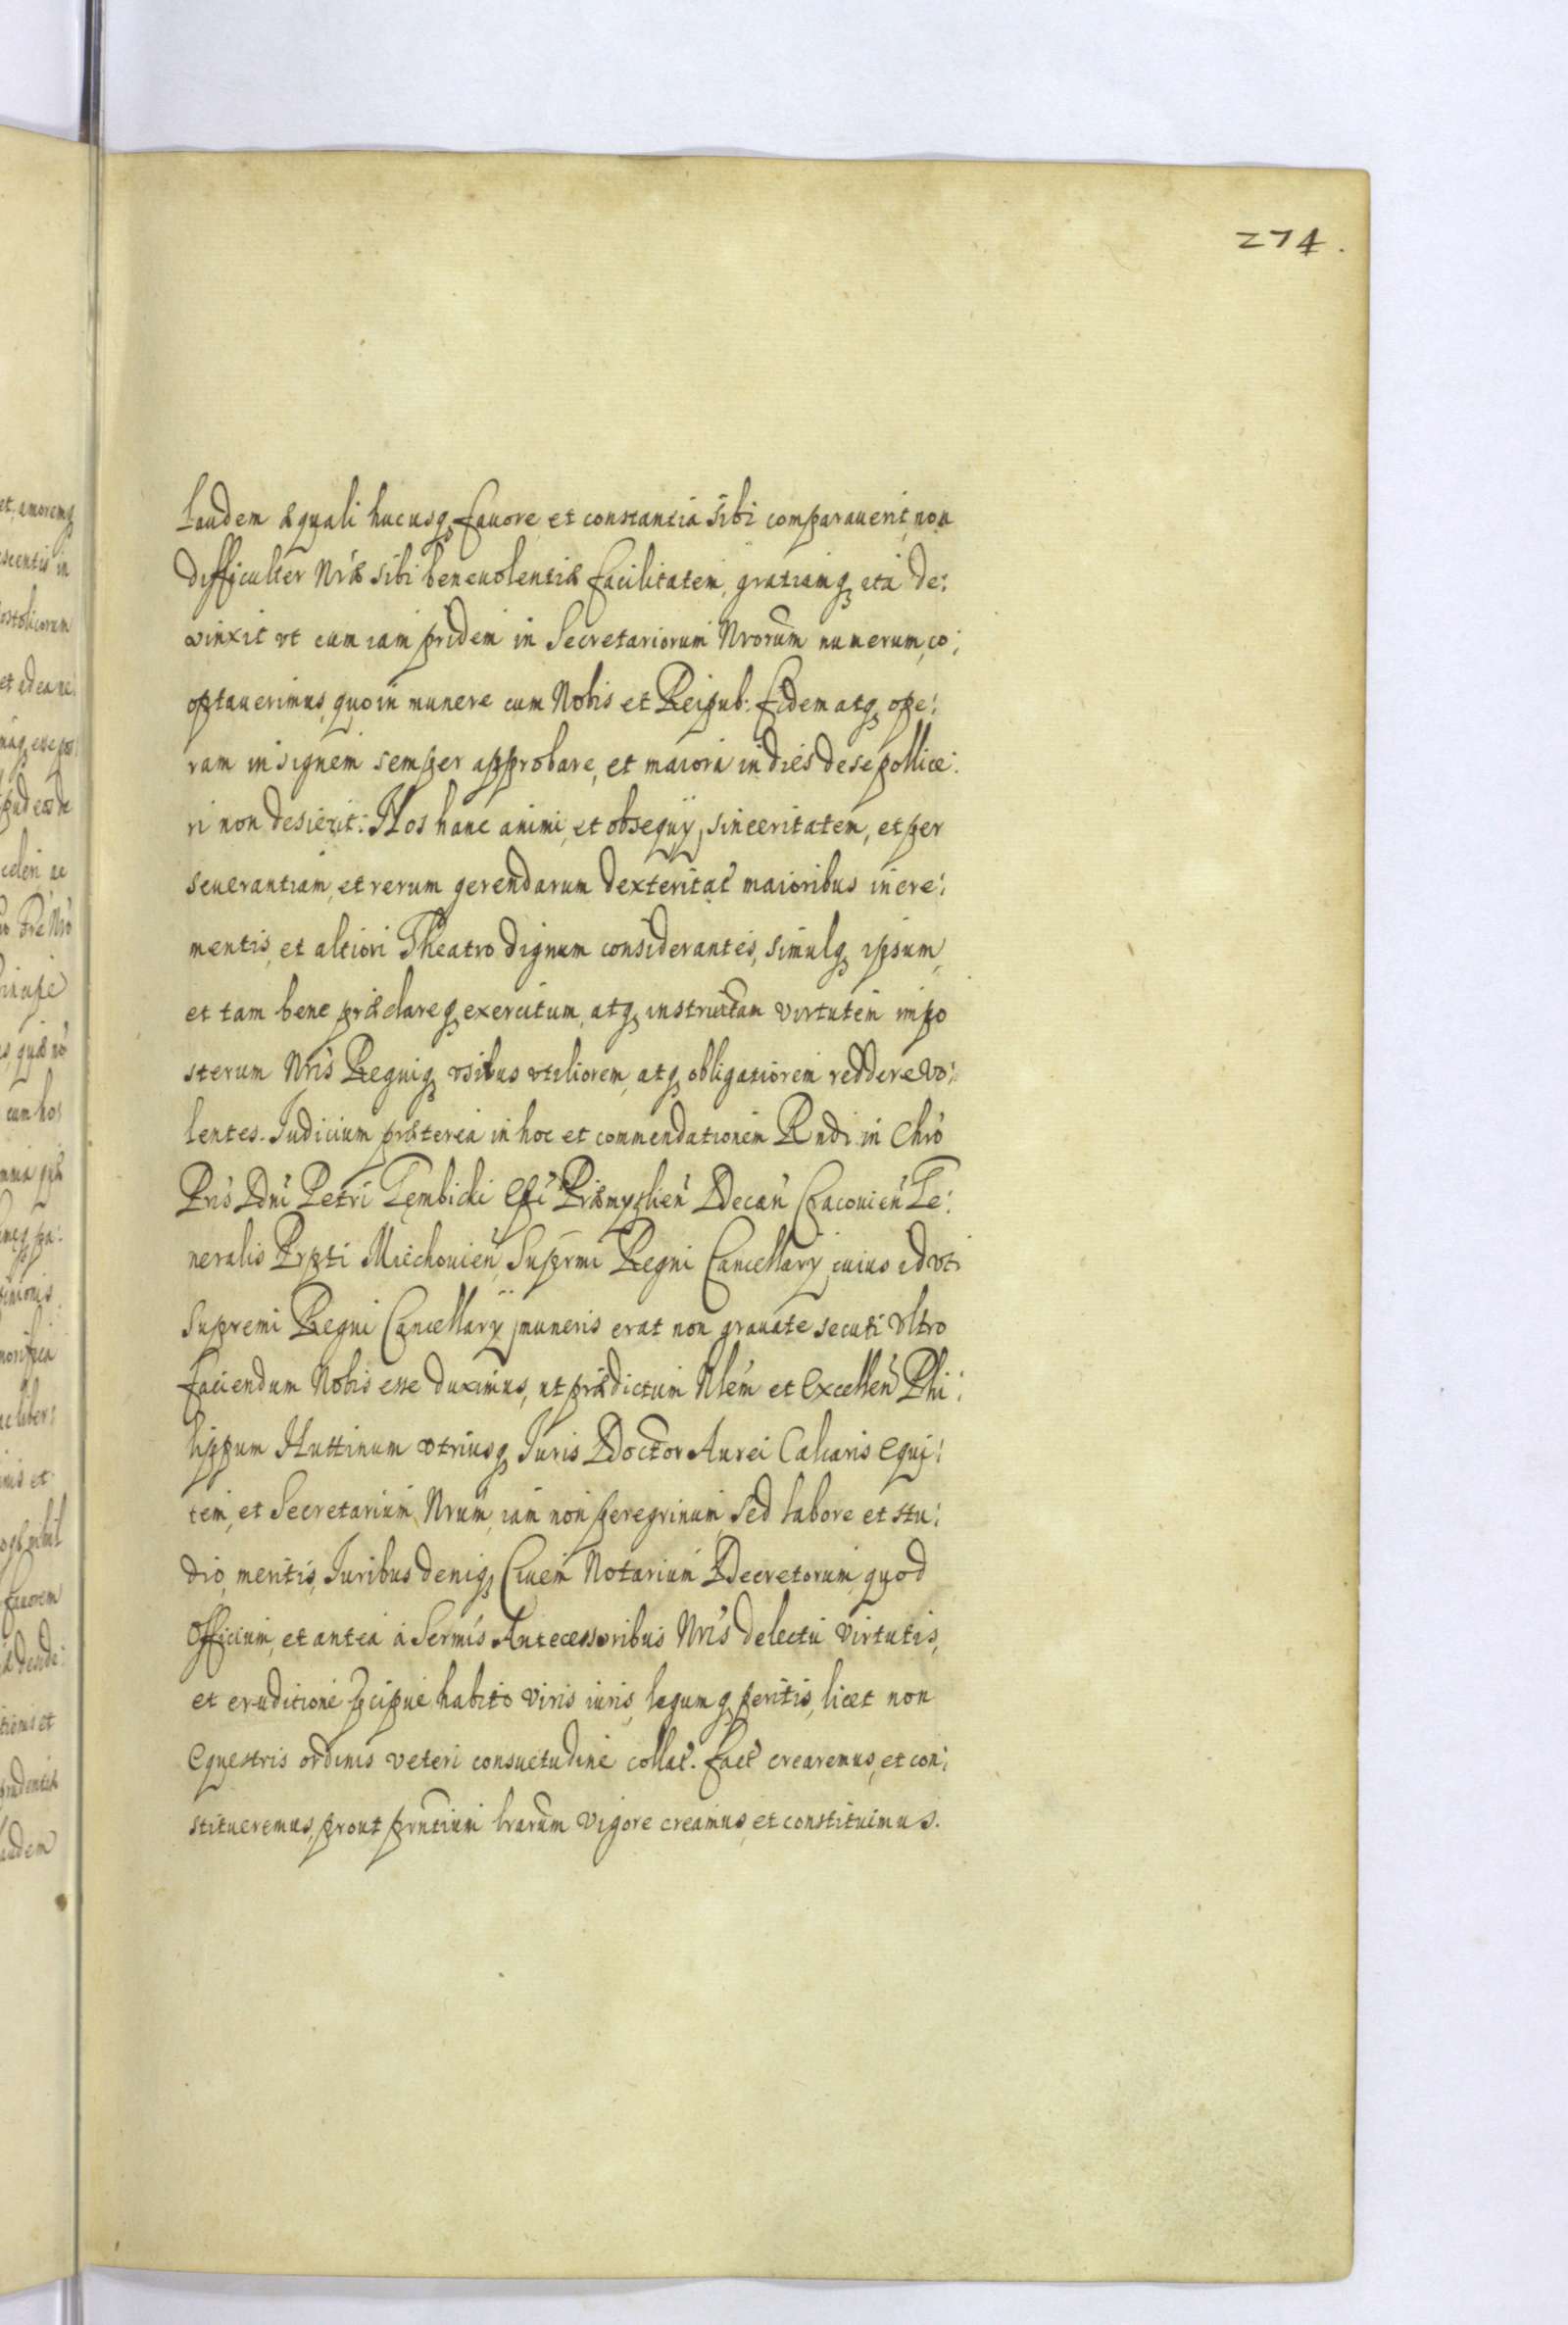 274.
laudem æquali hucusq́ fauore et constantia sibi comparauerit, non
difficulter Nrǽ sibi beneuolentiæ facilitatem, gratiamq́ ita de:
uinxit vt eum iam pridem in Secretariorum Nrorum numerum, co:
optauerimus, quo in munere cum Nobis et Reipub: fidem atq́ ope:
ram insignem semper approbare, et maiora in dies de se pollice:
ri non desierit: Nos hanc animi, et obsequÿ, sinceritatem, et per
seuerantiam, et rerum gerendarum dexteritat́ maioribus incre:
mentis, et altiori Theatro dignum considerantes, simulq́ ipsum,
et tam bene præclareq́ exercitum, atq́ instructam virtutem impo
sterum Nris Regniq́ vsibus vtiliorem, atq́ obligatiorem reddere vo:
lentes. Iudicium præterea in hoc et commendationem Rndi in Chrō
Pris Dni Petri Gembicki Epi Præmyslień Decań Cracouień Ge:
neralis Prpti Miechouień, Suprmi Regni Cancellarÿ, cuius id vti
Supremi Regni Cancellarÿ muneris erat non grauate secuti vltro
faciendum Nobis esse duximus, ut prædictum Nlem et Excelleń Phi:
lippum Huttinum vtriusq́ Iuris Doctor Aurei Calcaris Equi:
tem, et Secretarium Nrum, iam non peregrinum, sed labore et stu:
dio, meritis, Iuribus deniq́ Ciuem Notarium Decretorum, quod
Officium, et antea à Sermis Antecessoribus Nris delectu virtutis,
et eruditione pcipue habito viris iuris, legumq́ peritis, licet non
Equestris ordinis veteri consuetudine collat́. fact́ crearemus, et con:
stitueremus, prout prntium lrarum vigore creamus, et constituimus.